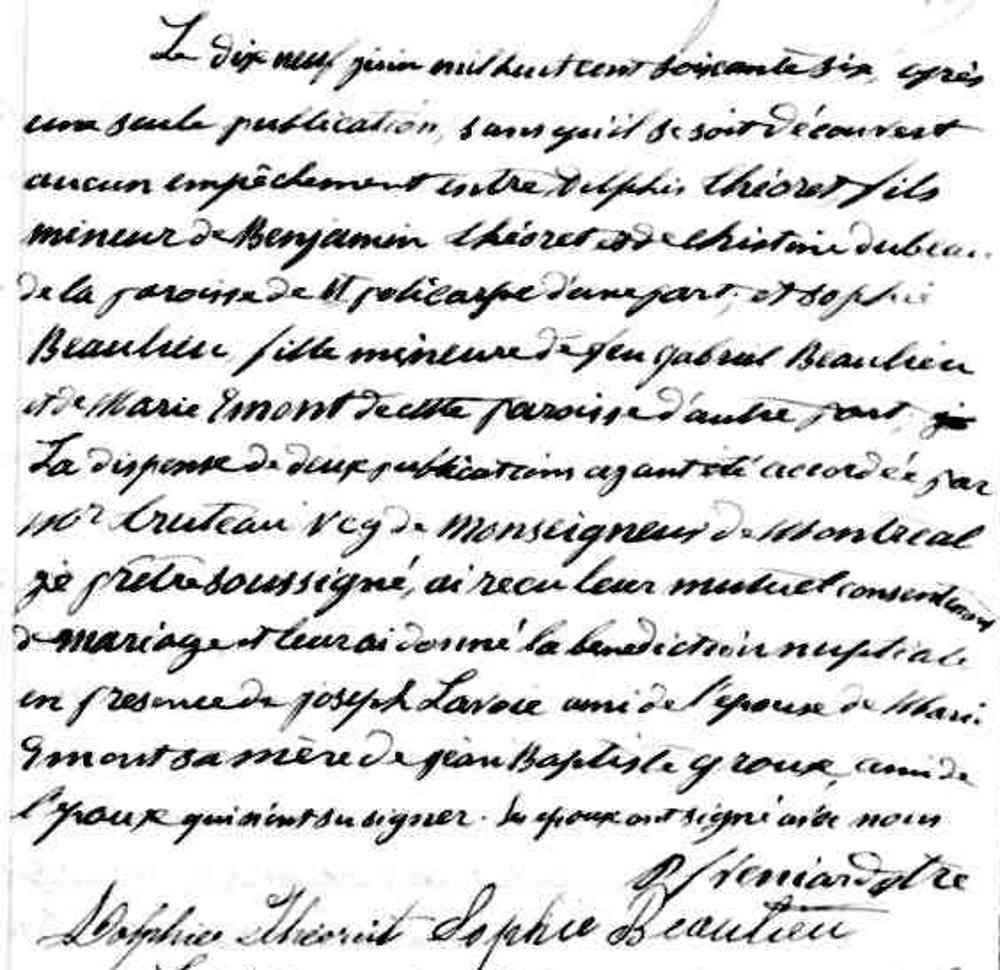 Le dix neuf juin mil huit cent soixante six, après
une seule publication, sans qu'il se soit découvert
aucun empêchement entre Delphis théoret fils
mineur de Benjamin théoret et de Christine dubeau
de la paroisse de St policarpe d'une part, et sophie
Beaulieu, fille mineure de feu gabriel Beaulieu
et de Marie Emont de cette paroisse d'autre part,
La dispense de deux publications ayant été accordée par
Mr truteau v c g de Monseigneur de Montreal
je prêtre soussigné, ai reçu leur mutuel consentement
de mariage et leur ai donné la benediction nuptiale
en presence de joseph Lavoie ami de l'épouse de Marie
Emont sa mère de jean Baptiste groux, ami de
l'époux qui n'ont su signer. les epoux ont signé avec nous
ptre
Dolphice Théorêt Sophie Beaulieu